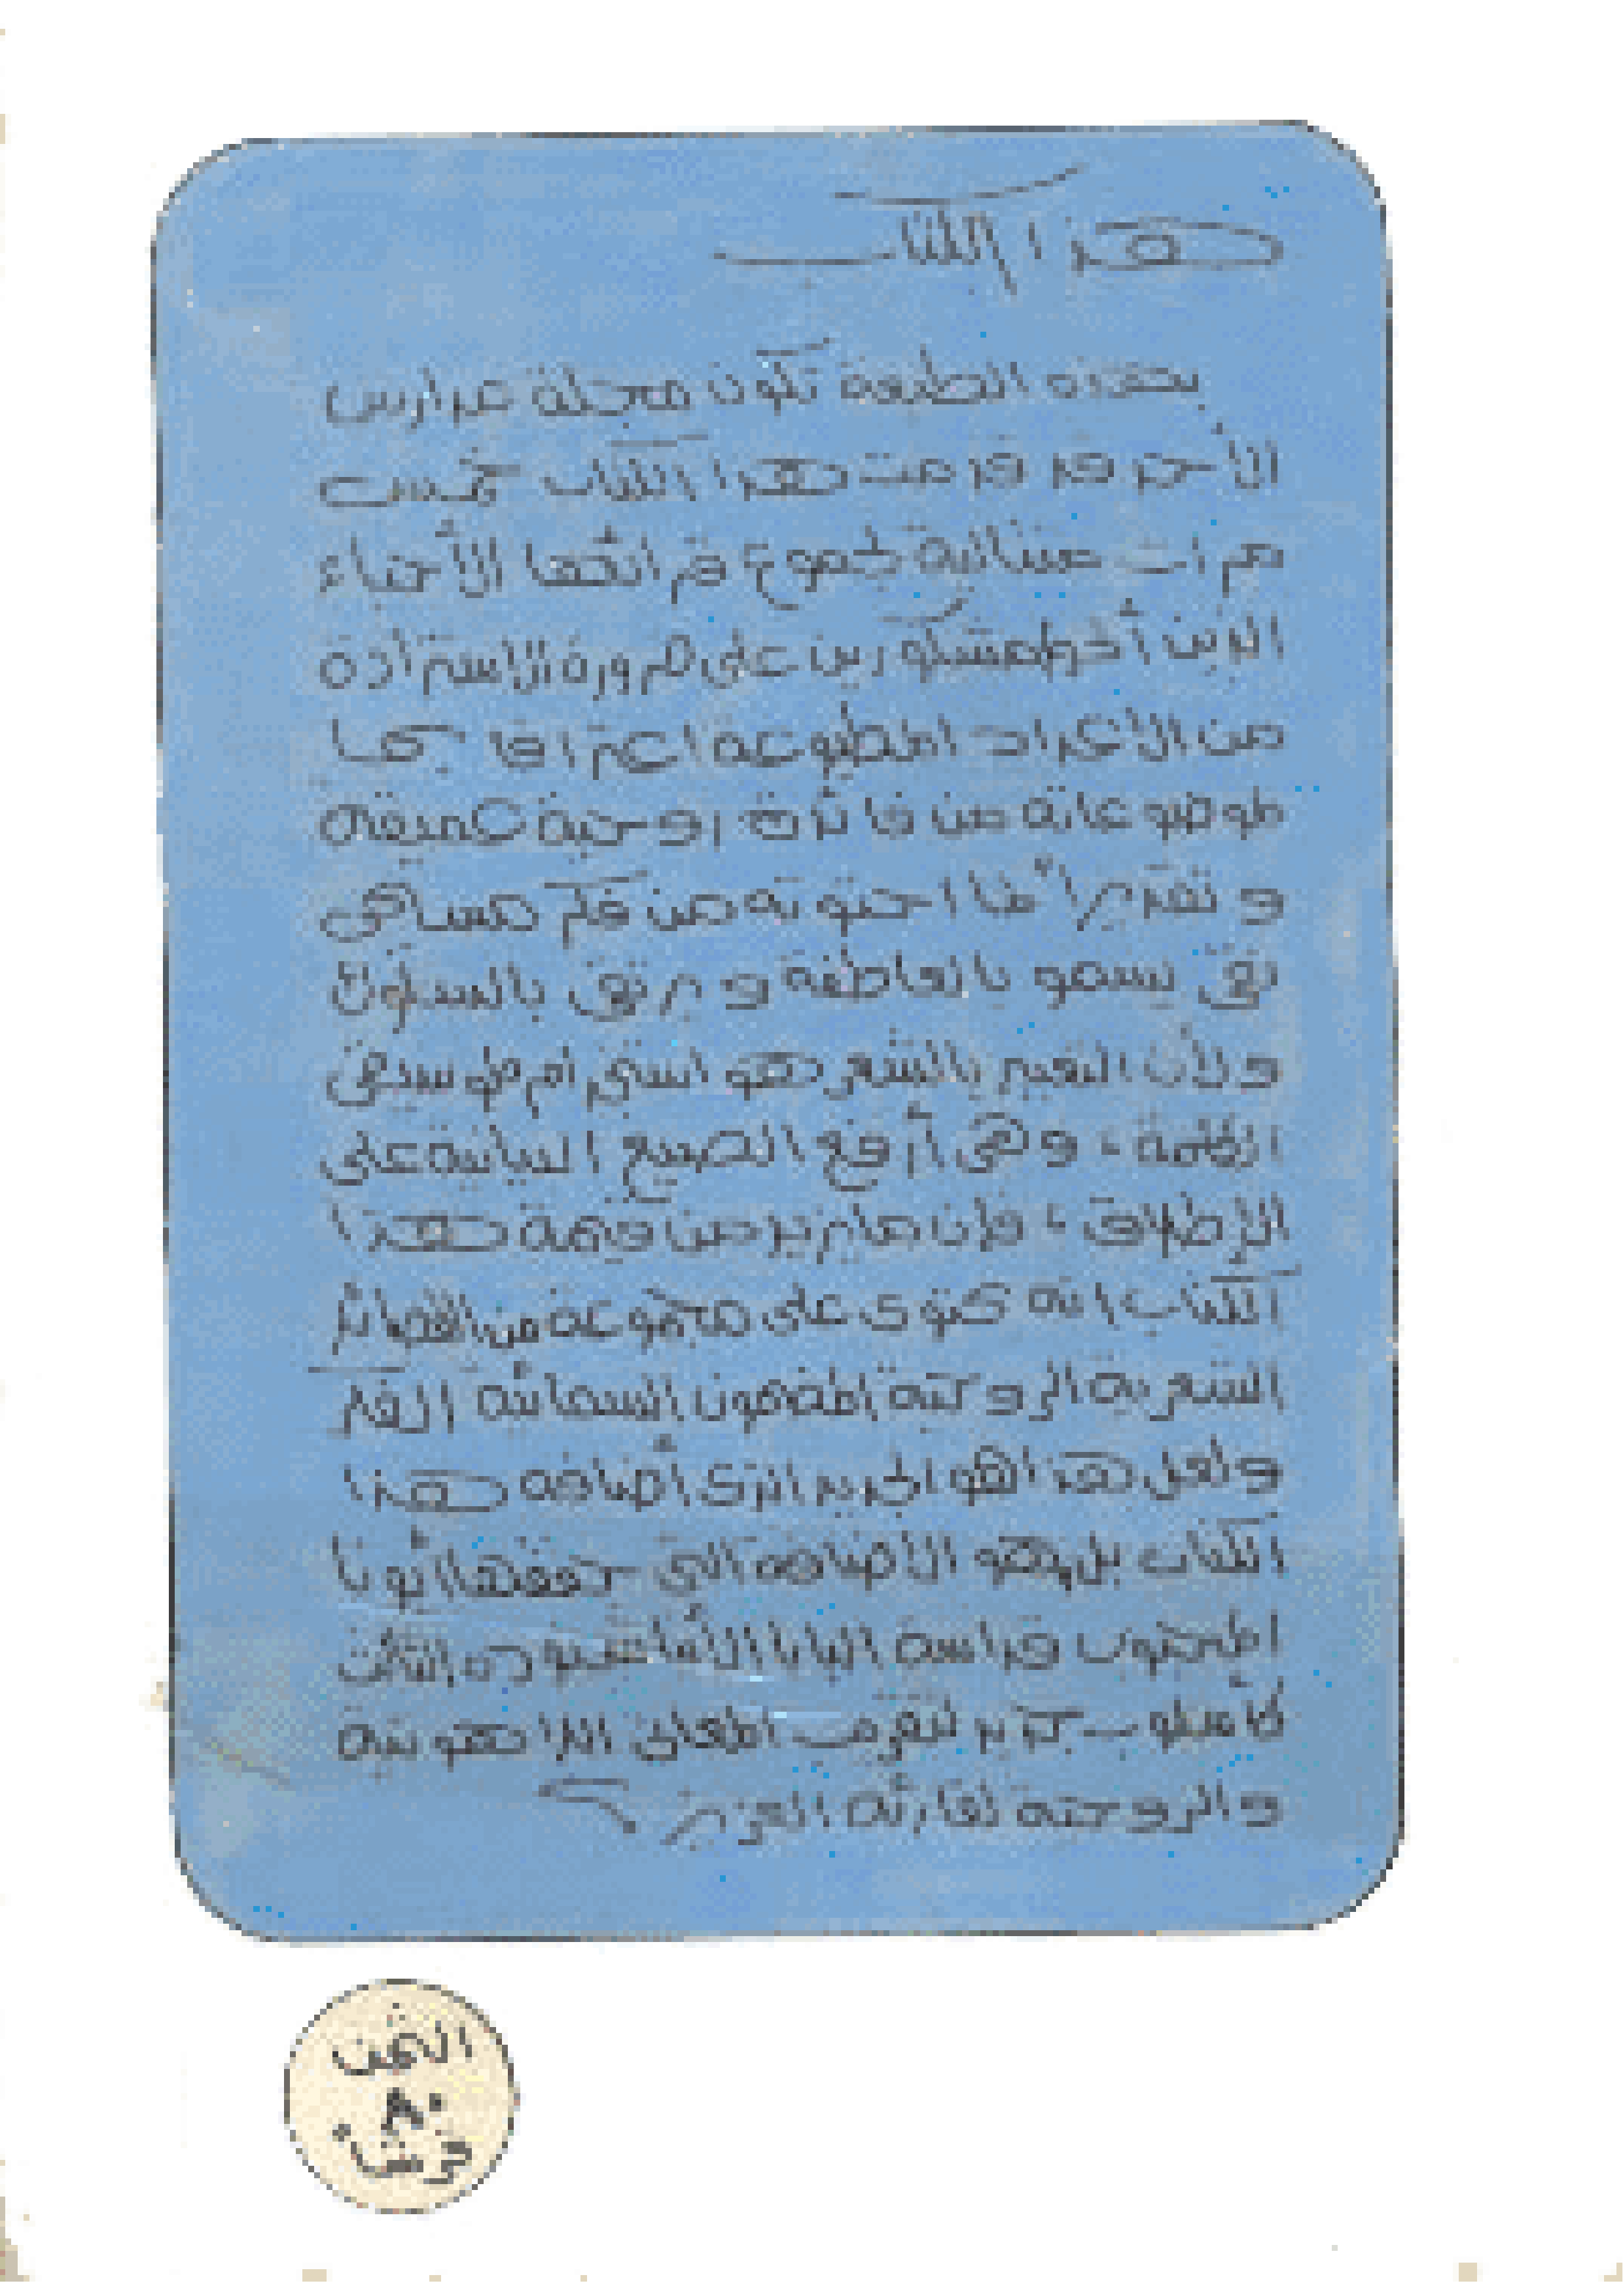 هذا الكتاب
بهذه الطبعة تكون مجلة مدارس
الأحد قد قدمت هذا الكتاب خمس
مرات متتالية لجموع قرائها الأحباء
الذين ألحوا مشكورين على ضرورة الاستزادة
من الأعداد المطبوعة اعترافا بما
لموضوعاته من فاعلية روحية عميقة
وتقديراً لما احتوته من فكر مسيحى
نقى يسمو بالعاطفة ويرتقى بالسلوك
ولأن التعبير بالشعر هو أسمى أم موسيقى
الكلمة ، وهى أرفع الصيغ البيانية على
الإطلاق ، فإن مايزيد من قيمة هذا
الكتاب انه يحتوى على مجموعة من القصائد
الشعرية الروحية المضمون السمائية الفكر
ولعل هذا هو الجديد الذى أضافه هذا
الكتاب بل هو الأضافة التى حققها أبونا
المحبوب قداسة البابا الأنبا شنودة الثالث
كأسلوب جديد لتقريب المعانى اللاهوتية
والروحية لقارئه العزيز
الثمن
٨٠
قرشاً